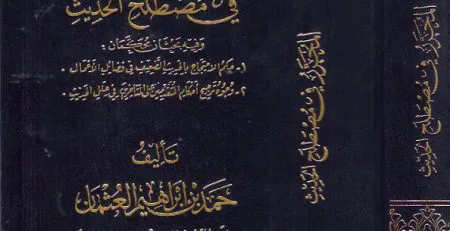 في مصطلح الحديث
وفيه بحثان محكمان :
١- حكم الاحتجاج بالحديث الضعيف في فضائل الأعمال .
٢- وجوب ترجيح أحكام المتقدمين على المتأخرين في علل الحديث .
تأليف
حمد بن إبراهيم العثمان
المحرر في مصطلح الحديث
المحرر في مصطلح الحديث